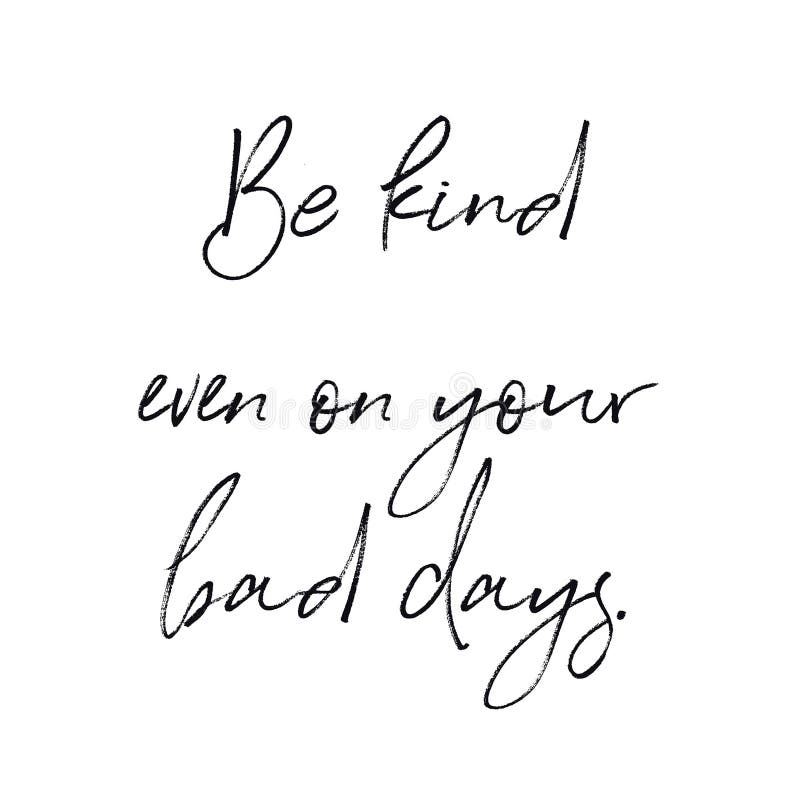 Be kind
even on your
bad days.
dreamstime